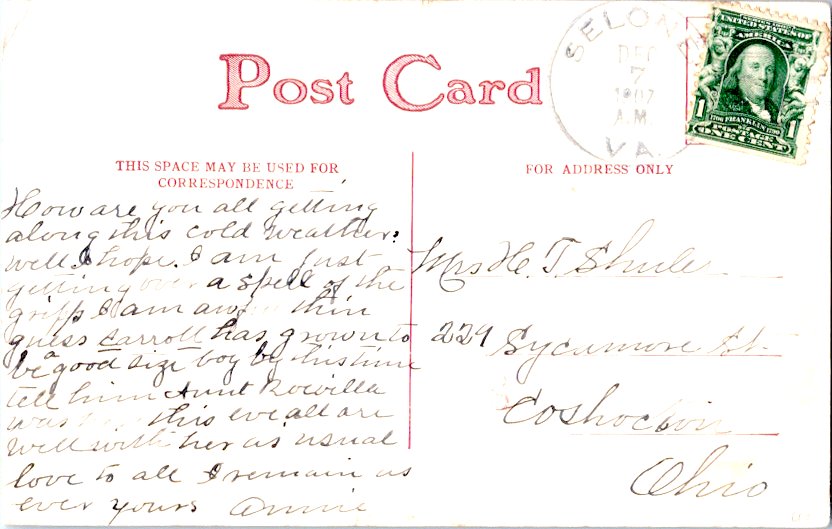 Post Card
SELOMA
DEC
7
1907
A.M.
VA.
UNITED STATES OF
AMERICA
1706 FRANKLIN 1790
1 1
POSTAGE
ONE CENT
THIS SPACE MAY BE USED FOR
CORRESPONDENCE
FOR ADDRESS ONLY
How are you all getting
along this cold weather?
well I hope. I am just
getting over a spell of the
gripp I am thin
guess Carroll has grown to
be a good size boy by this time
tell him Aunt
was this eve all are
well with her as usual
love to all I remain as
ever yours Annie
Mrs H. T Shule
229 Sycamore St.
Coshocton
Ohio